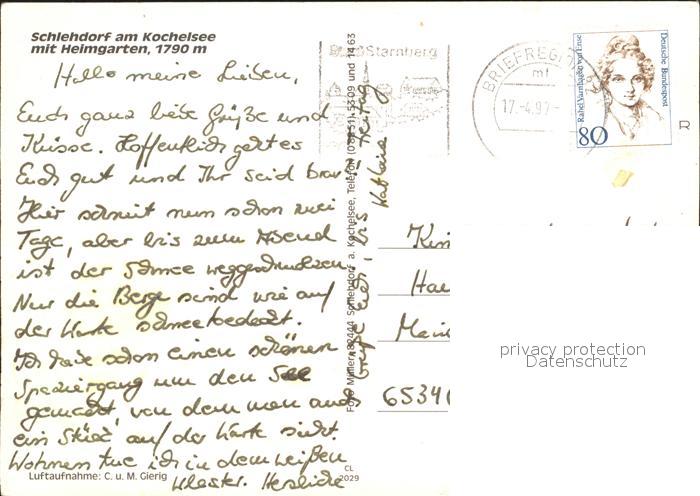 Schlehdorf am Kochelsee
mit Heimgarten, 1790 m
Hallo meine Lieben,
Euch ganz liebe Grüße und
Küsse. Hoffentlich geht es
Euch gut und Ihr seid brav.
Hier schneit nun schon zwei
Tage, aber bis zum Abend
ist der Schnee weggeschmolzen
Nur die Berge sind wie auf
der Karte schneebedeckt.
Ich habe schon einen schönen
Spaziergang um den See
gemacht, von dem man auch
ein Stück auf der Karte sieht.
Wohnen tue ich in dem weißen
Kloster. Herzliche
Grüße Euch, bis Freitag
Luftaufnahme: C. u. M. Gierig
CL
2029
Foto Müller, 82444 Schlehdorf a. Kochelsee, Telefon (08851) 5309 und 1463
Starnberg
BRIEFREGION
17.-4.97-
Rahel Varnhagen von Ense
Deutsche Bundespost
80
R
65340
privacy protection
Datenschutz